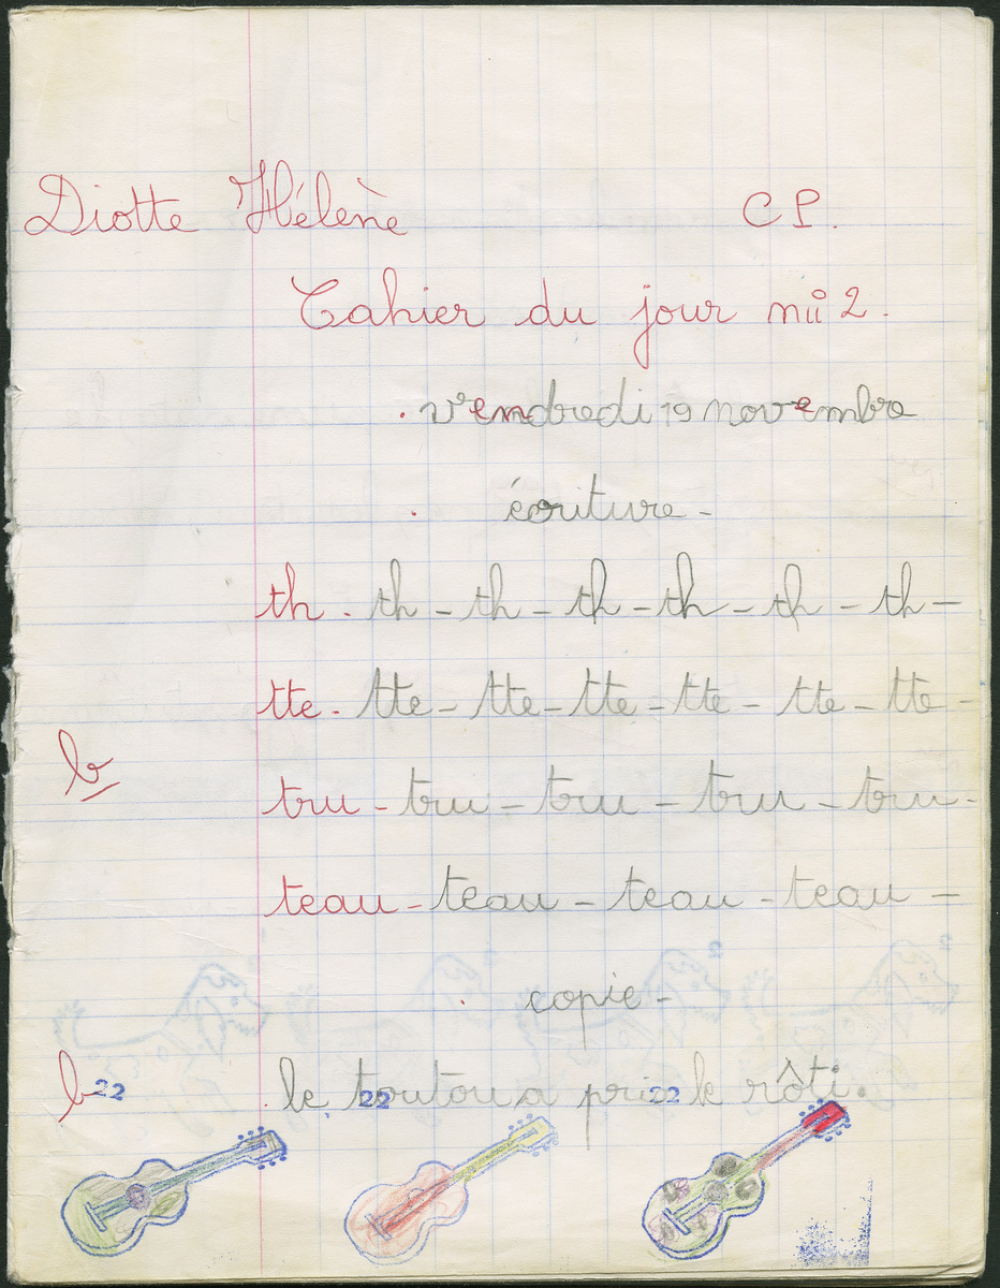 Diotte Hélène CP.
Cahier du jour nº 2.
. vendredi 19 novembre
. écriture -
th . th - th - th - th - th - th -
tte . tte - tte - tte - tte - tte - tte -
b
tru - tru - tru - tru - tru -
teau - teau - teau - teau -
. copie -
b 22 . le toutou a pris le rôti.
22 22